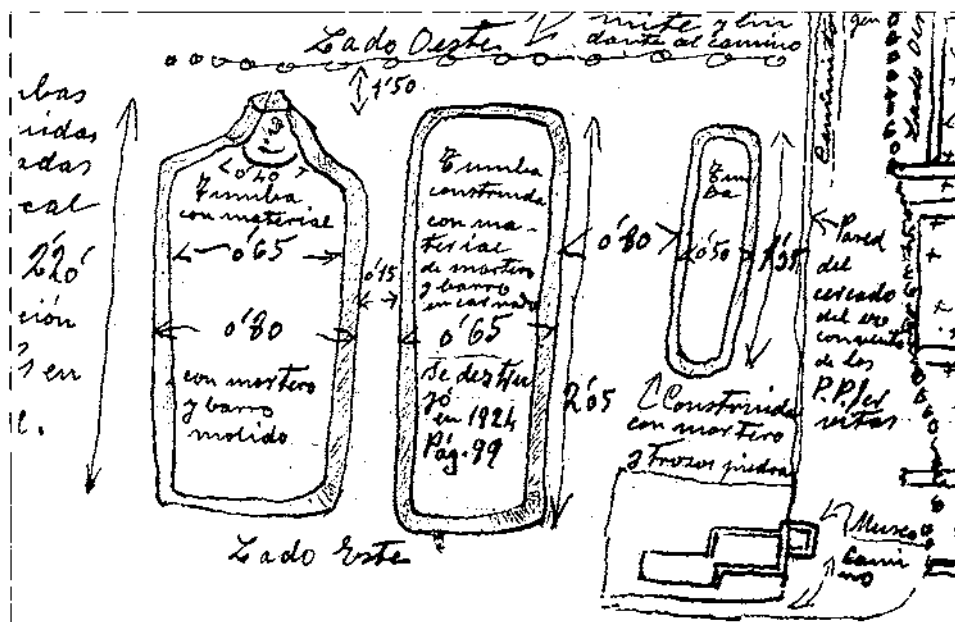 Lado Oeste
mite y lin
dante al camino
Caminito
Lado Oes
1'50
bas
idas
adas
cal
2'20
ción
en
0'40
Tumba
con material
0'65
0'80
con mortero
y barro
molido
0'15
Tumba
construida
con ma-
terial
de mortero
y barro
encarnado
0'65
Se destru
yó
en 1924
Pág. 99
2'05
0'80
Tum
ba
0'50
Construida
con mortero
y trozos piedra
Pared
del
cercado
del ex
convento
de los
P.P. Ser
vitas
Museo
Cami
no
Lado Este